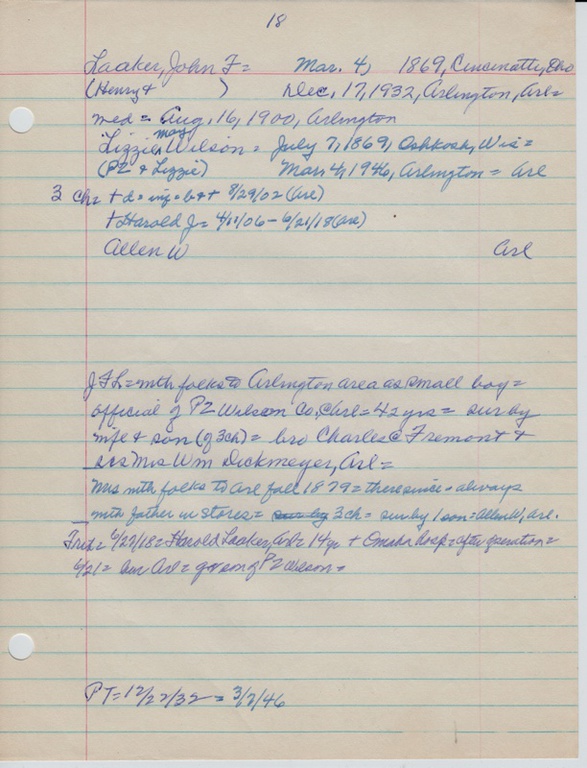 18
Laaker, John F = Mar. 4, 1869, Cincinatti, Ohio
(Henry + ) Dec. 17, 1932, Arlington, Arl =
med = Aug. 16, 1900, Arlington
may
Lizzie Wilson = July 7, 1869, Oshkosh, Wis =
(PZ & Lizzie) Mar 4, 1946, Arlington = Arl
3 Ch = + d = inf = b + + 8/29/02 (Arl)
+ Harold J = 4/11/06 - 6/21/18 (Arl)
Allen W Arl
JFL = with folks to Arlington area as small boy =
official of PZ Wilson Co, Arl = 42 yrs = sur by
wife & son (of 3 ch) = bro Charles @ Fremont &
sis Mrs Wm Dickmeyer, Arl =
Mrs with folks to Arl fall 1879 = there since = always
with father in stores = sur by 3 ch = sur by 1 son = Allen W, Arl.
6/27/18 = Harold Laaker, Arl = 14 yr + Omaha hosp = after operation =
6/21 = bur Arl = gr son of PZ Wilson =
PT = 12/22/32 = 3/7/46